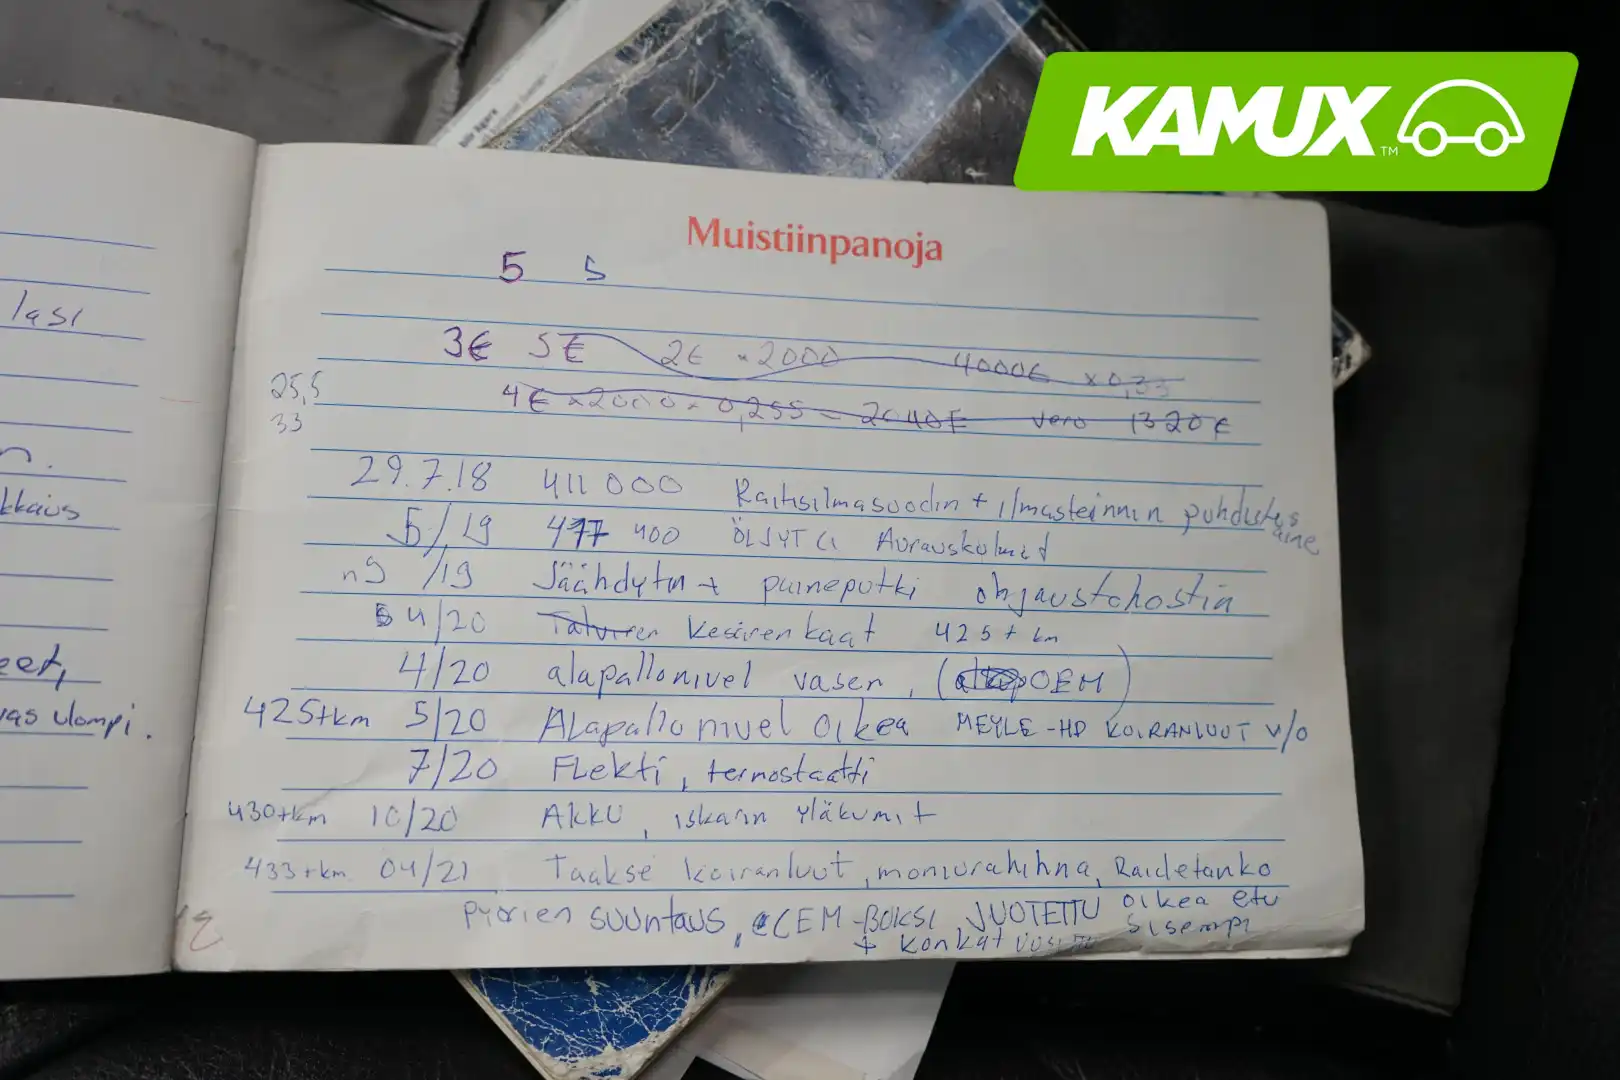 KAMUX™
Muistiinpanoja
5 5
3€ 5€ 2€ × 2000 4000€ × 0,33
25,5 4€ × 2000 × 0,255 = 2040€ vero 1320€
33
29.7.18 411 000 Raitisilmasuodin + ilmastoinnin puhdistusaine
5/19 417 400 ÖLJYT
n9/19 Jäähdytin + paineputki ohjaustehostin
4/20 Talviren Kesärenkaat 425 t km
4/20 alapallonivel vasen, (OEM)
425tkm 5/20 Alapallonivel oikea MEYLE-HD KOIRANLUUT V/O
7/20 Flekti, termostaatti
430tkm 10/20 AKKU, iskarin yläkumit
433tkm 04/21 Taakse koiranluut, moniurahihna, Raidetanko
oikea etu
Pyörien suuntaus, CEM-BOKSI JUOTETTU sisempi
+ konkat
lasi
n.
kkaus
eet,
vas ulompi.